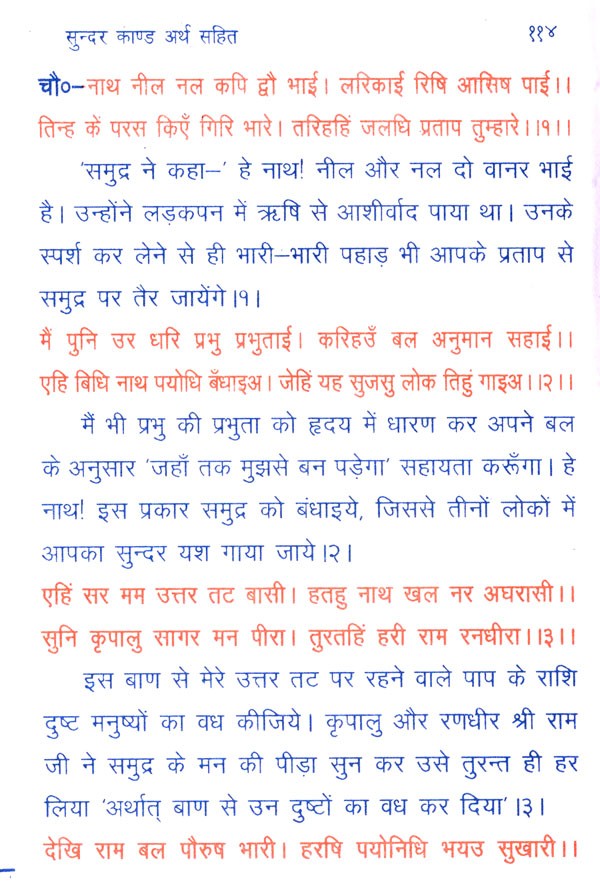 सुन्दर काण्ड अर्थ सहित ११४
चौ०–नाथ नील नल कपि द्वौ भाई। लरिकाई रिषि आसिष पाई।।
तिन्ह कें परस किएँ गिरि भारे। तरिहहिं जलधि प्रताप तुम्हारे।।१।।
'समुद्र ने कहा–' हे नाथ! नील और नल दो वानर भाई
है। उन्होंने लड़कपन में ऋषि से आशीर्वाद पाया था। उनके
स्पर्श कर लेने से ही भारी–भारी पहाड़ भी आपके प्रताप से
समुद्र पर तैर जायेंगे।१।
मैं पुनि उर धरि प्रभु प्रभुताई। करिहउँ बल अनुमान सहाई।।
एहि बिधि नाथ पयोधि बँधाइअ। जेहिं यह सुजसु लोक तिहुं गाइअ।।२।।
मैं भी प्रभु की प्रभुता को हृदय में धारण कर अपने बल
के अनुसार 'जहाँ तक मुझसे बन पड़ेगा' सहायता करूँगा। हे
नाथ! इस प्रकार समुद्र को बंधाइये, जिससे तीनों लोकों में
आपका सुन्दर यश गाया जाये।२।
एहिं सर मम उत्तर तट बासी। हतहु नाथ खल नर अघरासी।।
सुनि कृपालु सागर मन पीरा। तुरतहिं हरी राम रनधीरा।।३।।
इस बाण से मेरे उत्तर तट पर रहने वाले पाप के राशि
दुष्ट मनुष्यों का वध कीजिये। कृपालु और रणधीर श्री राम
जी ने समुद्र के मन की पीड़ा सुन कर उसे तुरन्त ही हर
लिया 'अर्थात् बाण से उन दुष्टों का वध कर दिया'।३।
देखि राम बल पौरुष भारी। हरषि पयोनिधि भयउ सुखारी।।